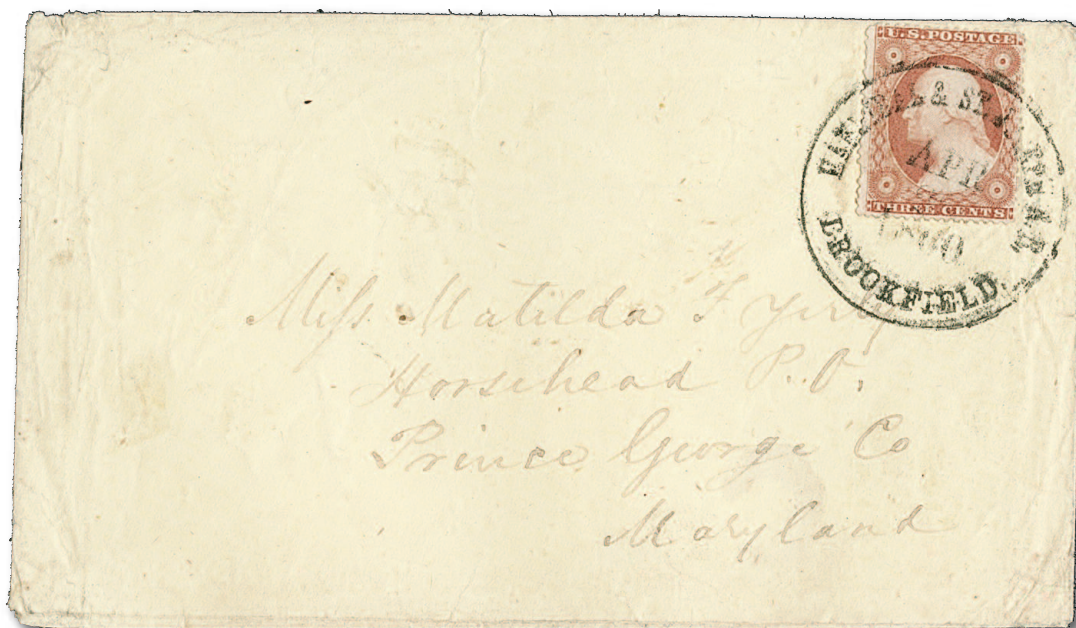 U.S. POSTAGE
THREE CENTS
& ST.
APR
1860
BROOKFIELD.
Miss. Matilda F
Horsehead P.O.
Prince George Co
Maryland